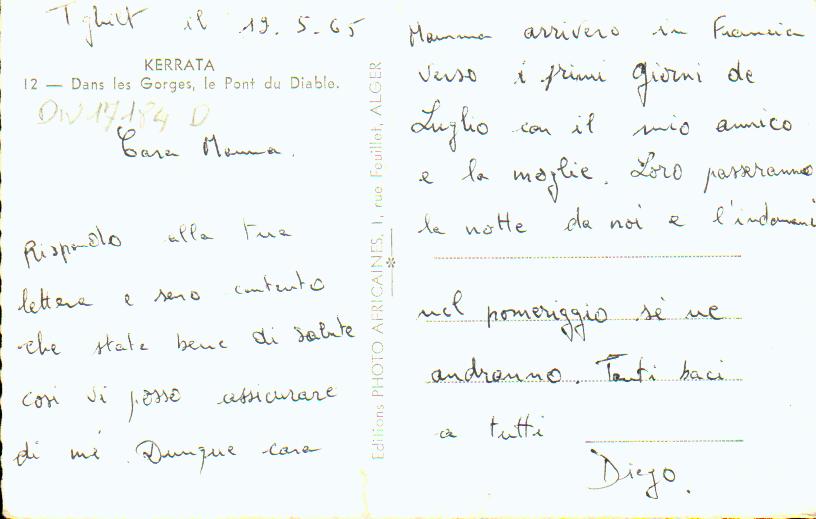 Tghilt il 19.5.65
KERRATA
12 — Dans les Gorges, le Pont du Diable.
DW 17184 D
Cara Mamma.
Rispondo alla tua
lettera e sono contento
che state bene di salute
così vi posso assicurare
di mè. Dunque cara
Editions PHOTO AFRICAINES, 1, rue Feuillet, ALGER
Mamma arrivero in Francia
verso i primi giorni de
Luglio con il mio amnico
e la moglie. Loro passeranno
la notte da noi e l'indomani
nel pomeriggio sè ne
andranno. Tanti baci
a tutti
Diego.